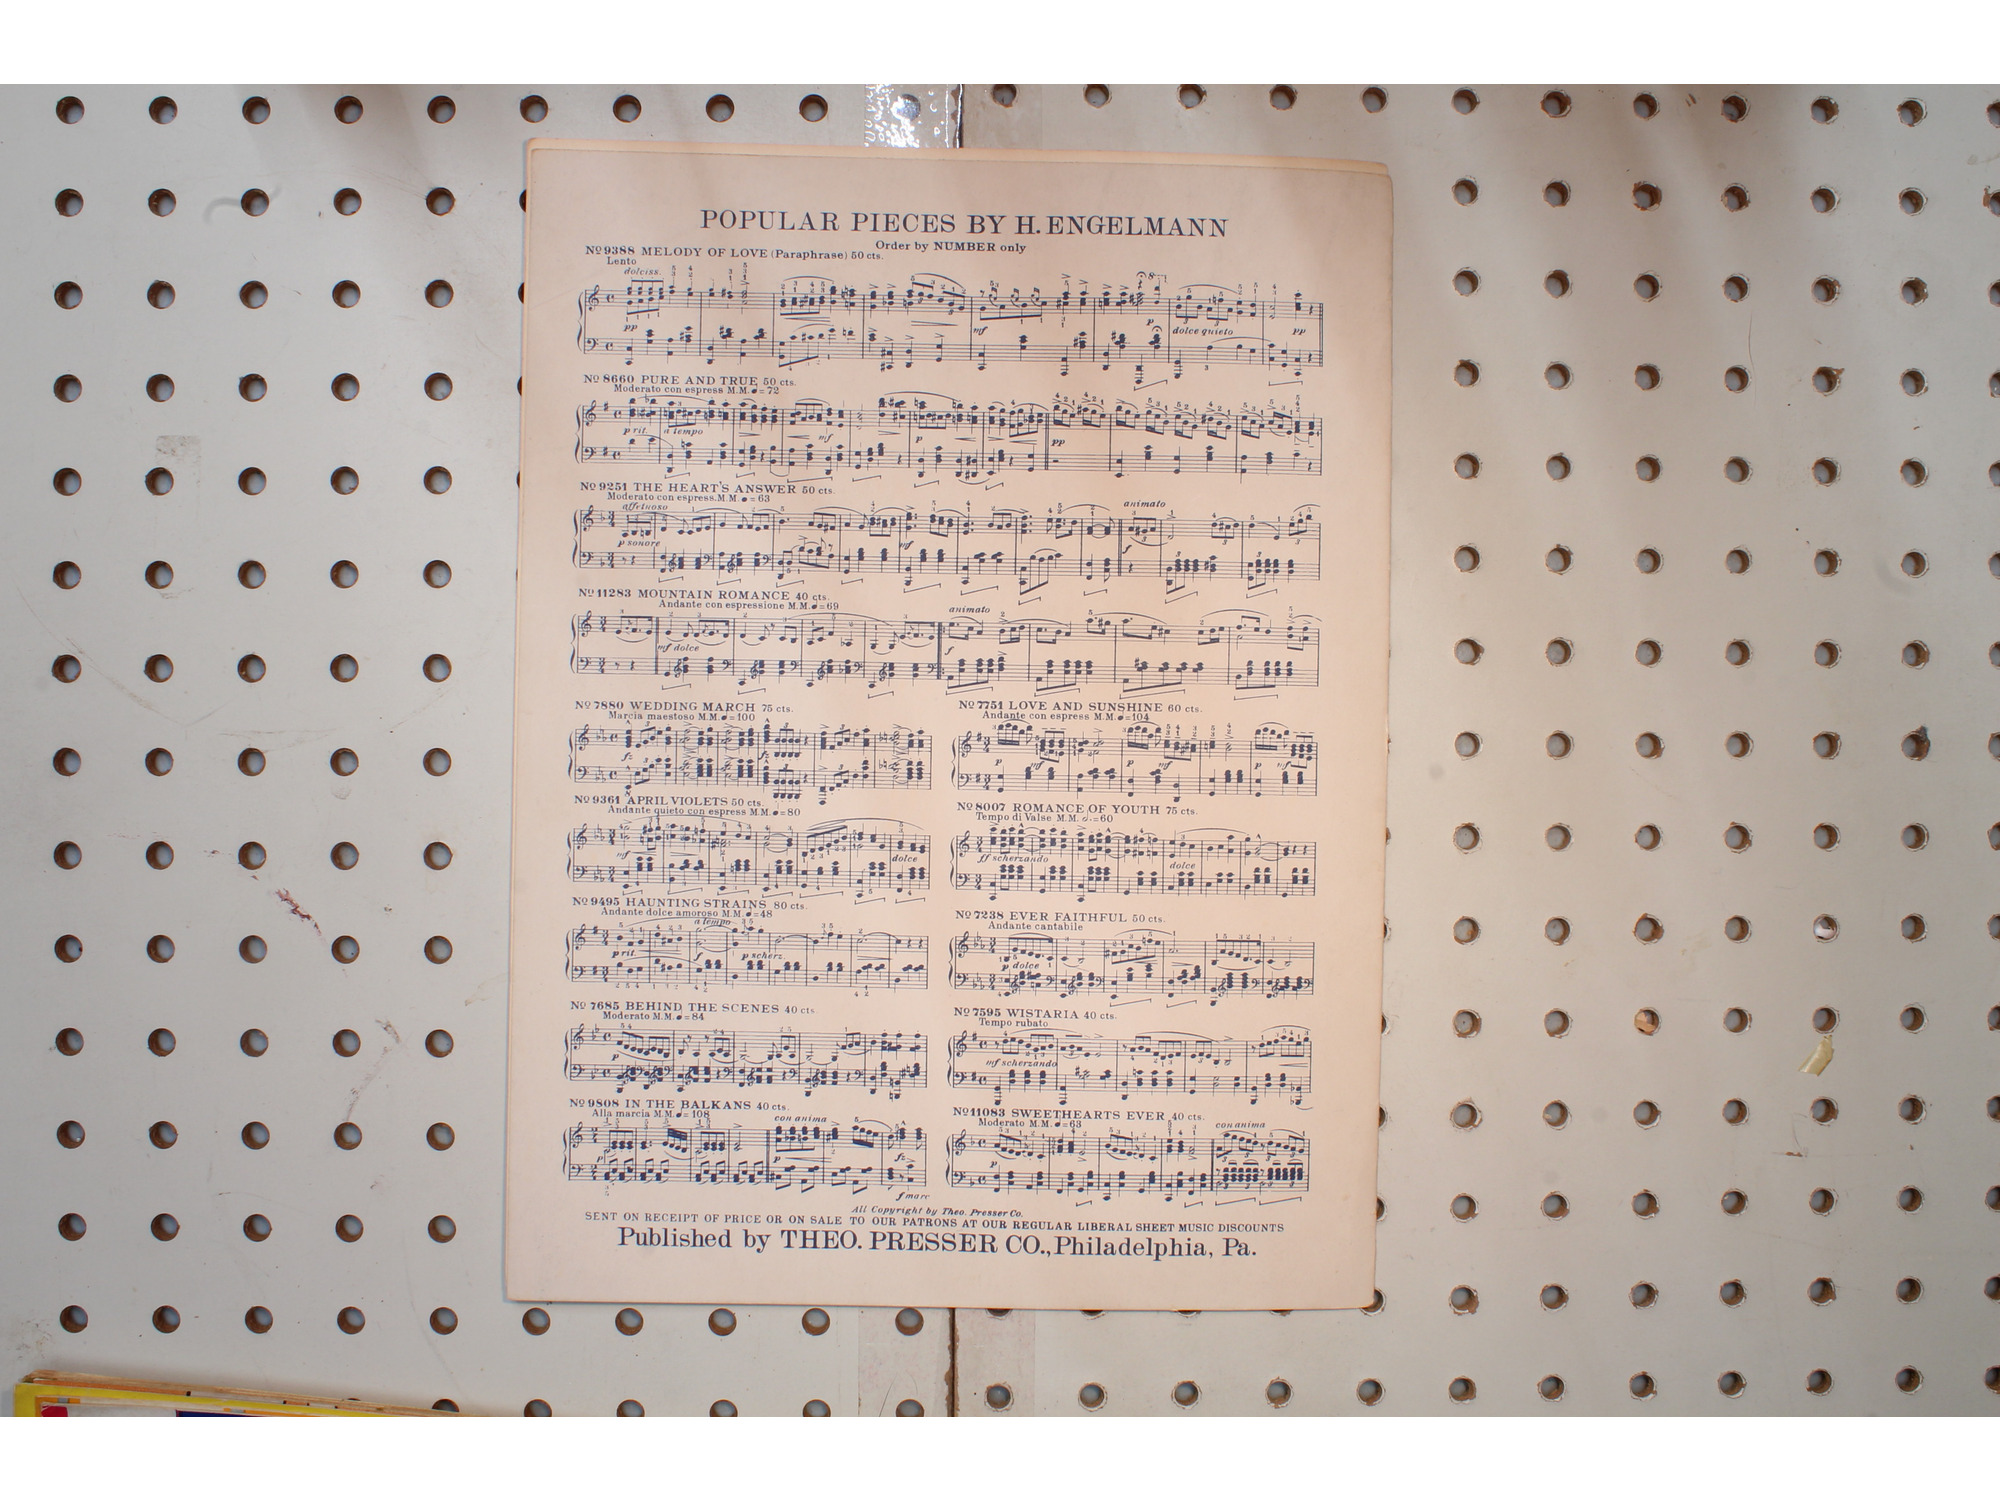 POPULAR PIECES BY H. ENGELMANN
Order by NUMBER only
No 9388 MELODY OF LOVE (Paraphrase) 50 cts.
Lento
dolciss.
pp
mf
p
8
dolce quieto
pp
No 8660 PURE AND TRUE 50 cts.
Moderato con espress M.M. ♩= 72
p rit.
a tempo
mf
p
pp
No 9251 THE HEART'S ANSWER 50 cts.
Moderato con espress. M.M. ♩= 63
affetuoso
animato
p sonore
mf
f
No 11283 MOUNTAIN ROMANCE 40 cts.
Andante con espressione M.M. ♩=69
animato
mf dolce
f
No 7880 WEDDING MARCH 75 cts.
Marcia maestoso M.M. ♩=100
fz
fz
No 7751 LOVE AND SUNSHINE 60 cts.
Andante con espress M.M. ♩=104
p
mf
p
mf
mf
No 9361 APRIL VIOLETS 50 cts.
Andante quieto con espress M.M. ♩=80
mf
dolce
No 8007 ROMANCE OF YOUTH 75 cts.
Tempo di Valse M.M. 𝅗𝅥.=60
ff scherzando
dolce
No 9495 HAUNTING STRAINS 80 cts.
Andante dolce amoroso M.M. ♩=48
a tempo
p rit.
f
p scherz.
No 7238 EVER FAITHFUL 50 cts.
Andante cantabile
p dolce
No 7685 BEHIND THE SCENES 40 cts.
Moderato M.M. ♩=84
p
No 7595 WISTARIA 40 cts.
Tempo rubato
mf scherzando
No 9808 IN THE BALKANS 40 cts.
Alla marcia M.M. ♩= 108
con anima
p
p
fz
f marc
No 11083 SWEETHEARTS EVER 40 cts.
Moderato M.M. ♩=63
con anima
p
All Copyright by Theo. Presser Co.
SENT ON RECEIPT OF PRICE OR ON SALE TO OUR PATRONS AT OUR REGULAR LIBERAL SHEET MUSIC DISCOUNTS
Published by THEO. PRESSER CO., Philadelphia, Pa.